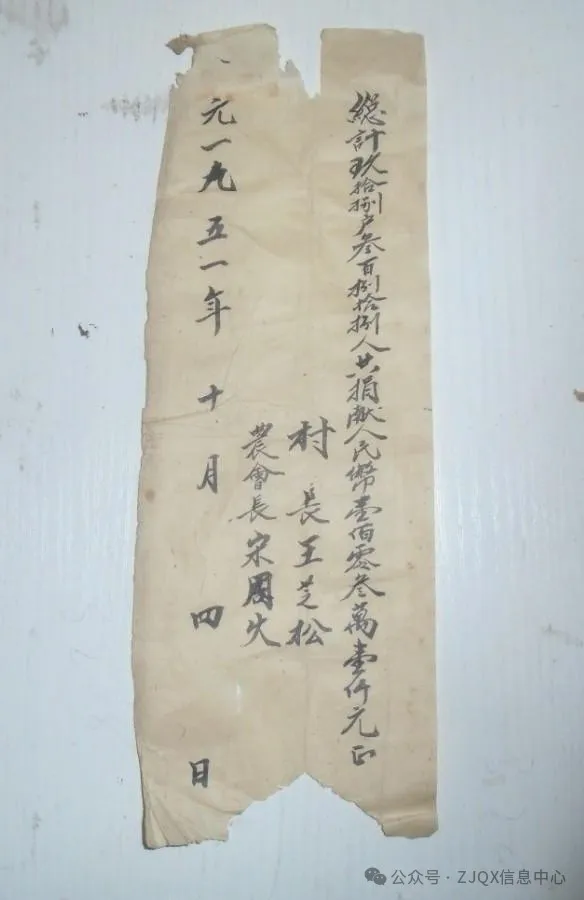 總計玖拾捌户叁百捌拾捌人共捐献人民幣壹佰零叁萬壹仟元正
村長王芝松
農會長宋國火
元一九五一年十月四日
公众号·ZJQX信息中心